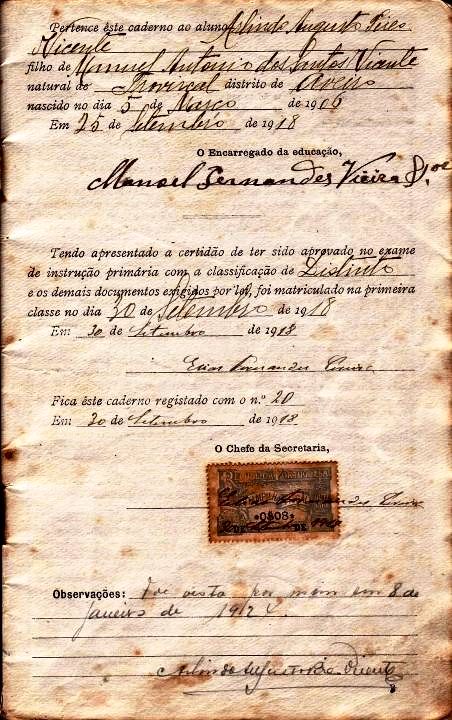 Pertence êste caderno ao aluno Arlindo Augusto Pires
Vicente
filho de Manuel António dos Santos Vicente
natural de Troviscal distrito de Aveiro
nascido no dia 5 de Março de 1906
Em 25 de Setembro de 1918
O Encarregado da educação,
Manoel Fernandes Vieira
Tendo apresentado a certidão de ter sido aprovado no exame
de instrução primária com a classificação de Distinto
e os demais documentos exigidos por lei, foi matriculado na primeira
classe no dia 30 de Setembro de 1918
Em 30 de Setembro de 1918
Elias Fernandes
Fica êste caderno registado com o n.º 20
Em 30 de Setembro de 1918
O Chefe da Secretaria,
Fernandes
DE DE
Observações: Foi visto por mim em 8 de
Janeiro de 1924
Arlindo Augusto Pires Vicente